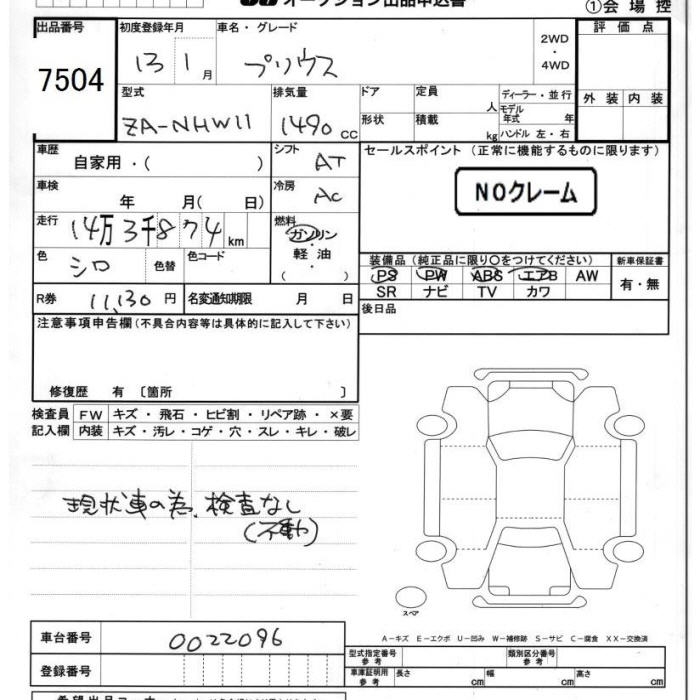 オークション出品申込書
①会場控
出品番号 初度登録年月 車名・グレード 評価点
7504 13 1月 プリウス 2WD・4WD
外装 内装
型式 排気量 ドア 定員 人 ディーラー・並行
ZA-NHW11 1490 CC 形状 積載 kg モデル年式 年
ハンドル 左・右
車歴 自家用・( ) シフト AT セールスポイント (正常に機能するものに限ります)
車検 年 月( 日) 冷房 AC NOクレーム
走行 14万3千874km 燃料 ガソリン・軽油・( )
色 シロ 色替 色コード 装備品(純正品に限り○をつけてください) 新車保証書
PS PW ABS エアB AW 有・無
SR ナビ TV カワ
R券 11,130円 名変通知期限 月 日 後日品
注意事項申告欄(不具合内容等は具体的に記入して下さい)
修復歴 有 〔箇所 〕
検査員 FW キズ・飛石・ヒビ割・リペア跡・×要
記入欄 内装 キズ・汚レ・コゲ・穴・スレ・キレ・破レ
現状車の為、検査なし
(不動)
スペア
A-キズ E-エクボ U-凹み W-補修跡 S-サビ C-腐食 XX-交換済
車台番号 0022096
型式指定番号 参考 類別区分番号 参考
登録番号 車庫証明用 参考 長さ cm 幅 cm 高さ cm
希望出品コーナー